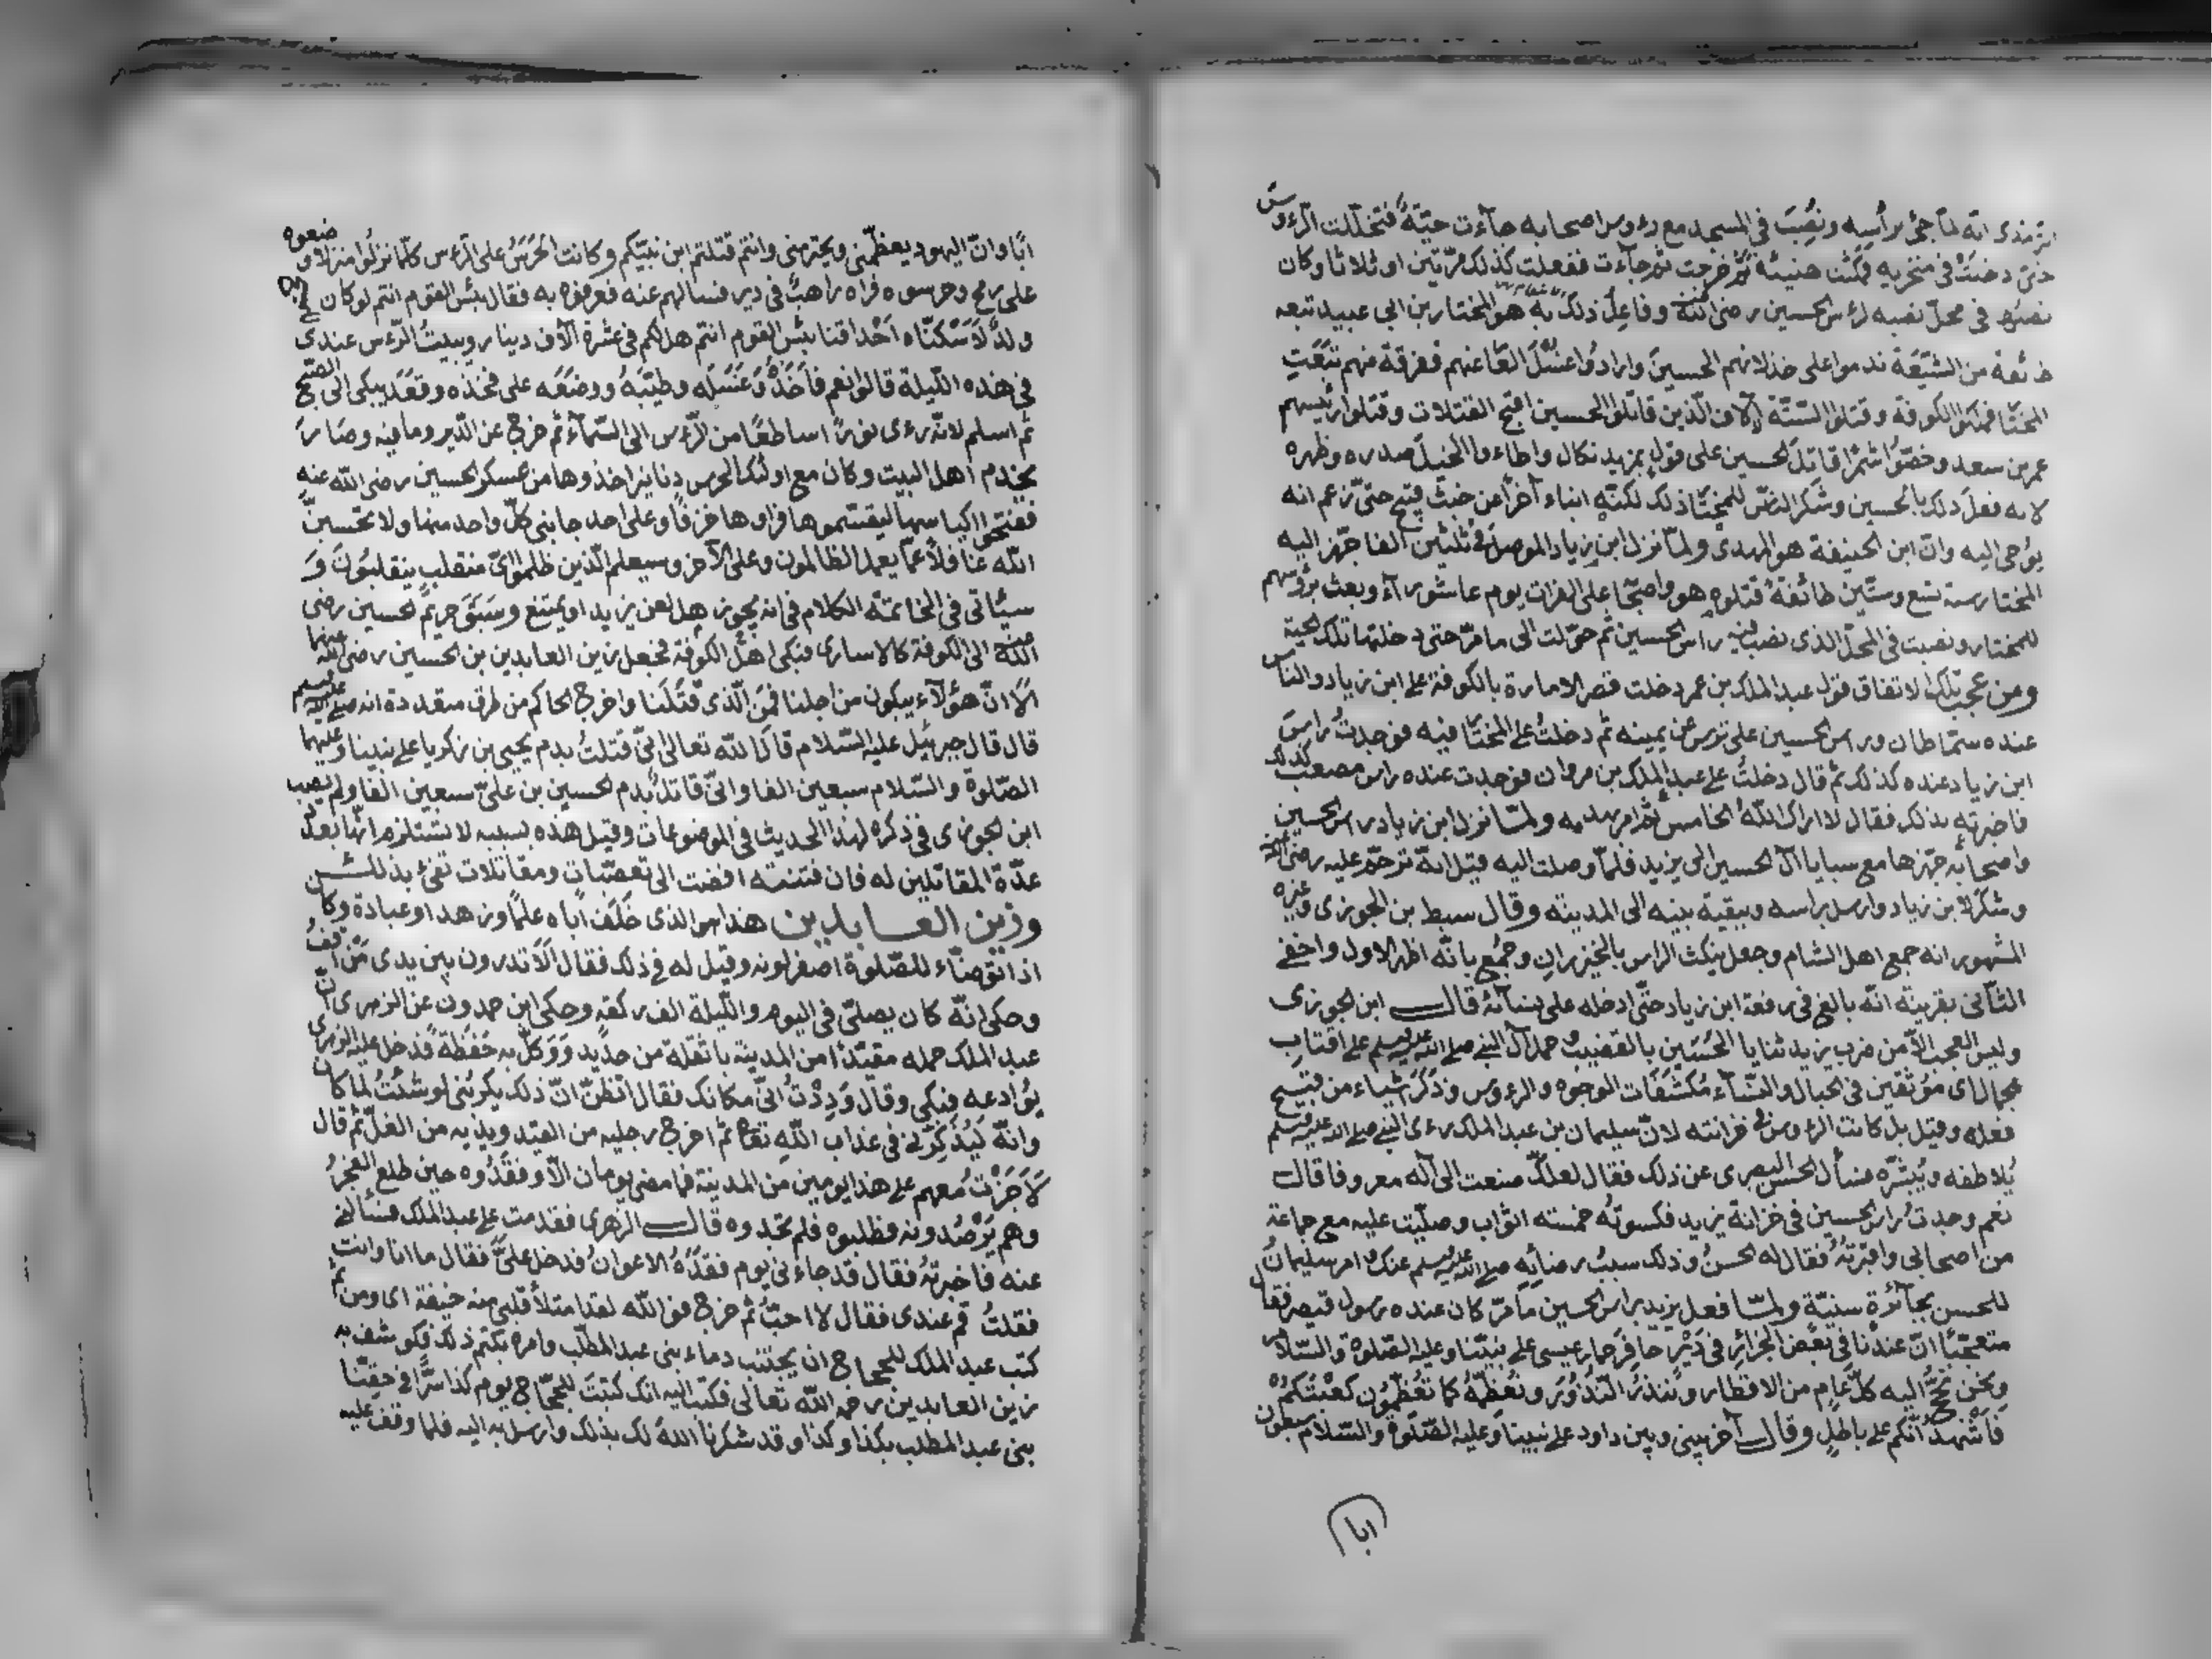 ترمذى انه لما جئ براسه ونصب فى المسجد مع رءوس اصحابه جآءت حيّة فتخللت الرءوس
حتى دخلت فى منخريه فمكثت هنيئة ثم خرجت ثم جآءت ففعلت كذلك مرّتين او ثلاثا وكان
نصبها فى محلّ نصبه لرأس الحسين رضى الله عنه وفاعل ذلك به هو المختار بن ابى عبيد تبعه
طائفة من الشيعة ندموا على خذلانهم الحسين وارادوا غسل العار عنهم ففرقة منهم تبعت
المختار فملكوا الكوفة وقتلوا الستّة آلاف الّذين قاتلوا الحسين اقبح القتلات وقتلوا رئيسهم
عمر بن سعد وخصّوا شمرا قاتل الحسين على قول بمزيد نكال واوطاءوا الخيل صدره وظهره
لانه فعل ذلك بالحسين وشكر النّاس للمختار ذلك لكنّه انباء آخرا عن خبث قبيح حتى زعم انه
يوحى اليه وانّ ابن الحنيفة هو المهدى ولمّا نزل ابن زياد الموصل فى ثلثين الفا جهّز اليه
المختار سنة تسع وستّين طائفة قتلوه هو واصحابه على الفرات يوم عاشورآء وبعث برؤسهم
للمختار ونصبت فى المحلّ الذى نصب فيه راس الحسين ثم حوّلت الى ما مرّ حتى دخلتها تلك الحية
ومن عجب تلك الاتفاق قول عبد الملك بن عمر دخلت قصر الامارة بالكوفة على ابن زياد والناس
عنده سماطان وراس الحسين على ترس عن يمينه ثم دخلت على المختار فيه فوجدت راس
ابن زياد عنده كذلك ثم قال دخلت على عبد الملك بن مروان فوجدت عنده راس مصعب كذلك
فاخبرته بذلك فقال لا اراك الله الخامس ثم امر بهدمه ولمّا نزل ابن زياد براس الحسين
واصحابه جهّزها مع سبايا آل الحسين الى يزيد فلمّا وصلت اليه قيل انه ترحّم عليه رضى الله عنه
وتنكر لابن زياد وارسل براسه وببقية بنيه الى المدينة وقال سبط بن الجوزى وغيره
المشهور انه جمع اهل الشام وجعل ينكث الراس بالخيزران وجمع بانّه اظهر الاول واخفى
الثآنى بقرينة انّه بالغ فى رفعة ابن زياد حتّى ادخله على نسآئه قال ابن الجوزى
وليس العجب الّا من ضرب يزيد ثنايا الحسين بالقضيب وحمل آل النبى صلى الله عليه وسلم على اقتاب
الجمال اى موثقين فى الحبال والنسآء مكشّفات الوجوه والرءوس وذكر اشياء من قبيح
فعله وقيل بل كانت الرءوس فى خزانته لانّ سليمان بن عبد الملك رءى النبى صلى الله عليه وسلم
يلاطفه ويبشّره فسأل الحسن البصرى عن ذلك فقال لعلّك صنعت الى آله معروفا قال
نعم وجدت راس الحسين فى خزانة يزيد فكسوته خمسة اثواب وصلّيت عليه مع جماعة
من اصحابى واقبرته فقال له الحسن وذلك سبب رضائه صلى الله عليه وسلم عنك فامر سليمان
للحسن بجآئزة سنيّة ولمّا فعل يزيد براس الحسين ما مرّ كان عنده رسول قيصر فقال
متعجّبا انّ عندنا فى بعض الجزائر فى دير حافر حمار عيسى على نبيّنا وعليه الصّلوة والسّلام
ونحن نحجّ اليه كلّ عام من الاقطار وننذر النذور ونعظّمه كما تعظّمون كعبتكم
فاشهد انّكم على باطل وقال آخر بينى وبين داود على نبينا وعليه الصّلوة والسّلام سبعون
ابا
ابًا وانّ اليهود يعظّمنى ويحترمنى وانتم قتلتم ابن نبيّكم وكانت الحرس على الرأس كلّما نزلوا منزلا وضعوه
على رمح وحرسوه فراه راهب فى دير فسالهم عنه فعرفوه به فقال بئس القوم انتم لو كان للمسيح
ولد لاسكنّاه احداقنا بئس القوم انتم هل لكم فى عشرة آلاف دينار ويبيت الرّءس عندى
فى هذه اللّيلة قالوا نعم فاخذه وغسله وطيّبه ووضعه على فخذه وقعد يبكى الى الصّبح
ثم اسلم لانّه رءى نورا ساطعا من الرّءس الى السّمآء ثم خرج عن الدّير وما فيه وصار
يخدم اهل البيت وكان مع اولئك الحرس دنانير اخذوها من عسكر الحسين رضى الله عنه
ففتحوا اكياسها ليقتسموها فراوها خزفا وعلى احد جانبى كلّ واحد منها ولا تحسبنّ
الله غافلا عمّا يعمل الظالمون وعلى الآخر وسيعلم الّذين ظلموا اىّ منقلب ينقلبون و
سيئاتى فى الخاتمة الكلام فى انه يجوز هل لعن يزيد او يمتنع وسبق حريم الحسين رضى
الله عنه الى الكوفة كالاسارى فبكى اهل الكوفة فجعل زين العابدين بن الحسين رضى الله عنهما
الا انّ هؤلآء يبكون من اجلنا فمن الّذى قتلنا واخرج الحاكم من طرق متعددة انه صلى الله عليه وسلم
قال قال جبرئيل عليه السّلام قال الله تعالى انّى قتلت بدم يحيى بن زكريا على نبينا وعليهما
الصّلوة والسّلام سبعين الفا وانّى قاتل بدم الحسين بن علىّ سبعين الفا ولم يصب
ابن الجوزى فى ذكره لهذا الحديث فى الموضوعات وقتل هذه بسببه لا تستلزم انّها بعدد
عدّة المقاتلين له فان فتنته افضت الى تعصّبات ومقاتلات تفئ بذلك
وزين العابدين هذا هو الذى خلف اباه علما وزهدا وعبادة وكان
اذا توضّاء للصّلوة اصفر لونه وقيل له فى ذلك فقال الا تدرون بين يدى من اقف
وحكى انّه كان يصلّى فى اليوم واللّيلة الف ركعة وحكى ابن حمدون عن الزهرى انّ
عبد الملك حمله مقيّدا من المدينة باثقلة من حديد ووكّل به حفظة فدخل عليه الزهرى
يوادعه فبكى وقال وددت انّى مكانك فقال اتظنّ انّ ذلك يكربنى لو شئت لما كان
وانّه ليذكّرنى فى عذاب الله تعالى ثم اخرج رجليه من القيد ويديه من الغلّ ثم قال
لا جزت معهم على هذا يومين من المدينة فما مضى يومان الّا وفقدوه حين طلع الفجر
وهم يرصدونه فطلبوه فلم يجدوه قال الزهرى فقدمت على عبد الملك فسألنى
عنه فاخبرته فقال قد جاءنى يوم فقده الاعوان فدخل علىّ فقال ما انا وانت
فقلت قم عندى فقال لا احبّ ثم خرج فو الله لقد امتلأ قلبى منه خيفة اى ومن ثم
كتب عبد الملك للحجاج ان يجتنب دماء بنى عبد المطّلب وامره بكتم ذلك فكوشف به
زين العابدين رحمه الله تعالى فكتب اليه انك كتبت للحجّاج يوم كذا سرّا فى حقّنا
بنى عبد المطلب بكذا وكذا وقد شكرنا الله لك بذلك وارسل به اليه فلما وقف عليه